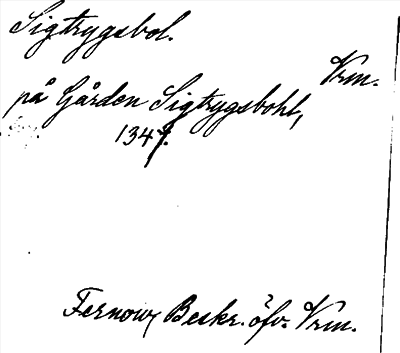 Sigtrygsbol.
Vrm.
på Gården Sigtrygsbohl,
Fernow, Beskr. öfv. Vrm.